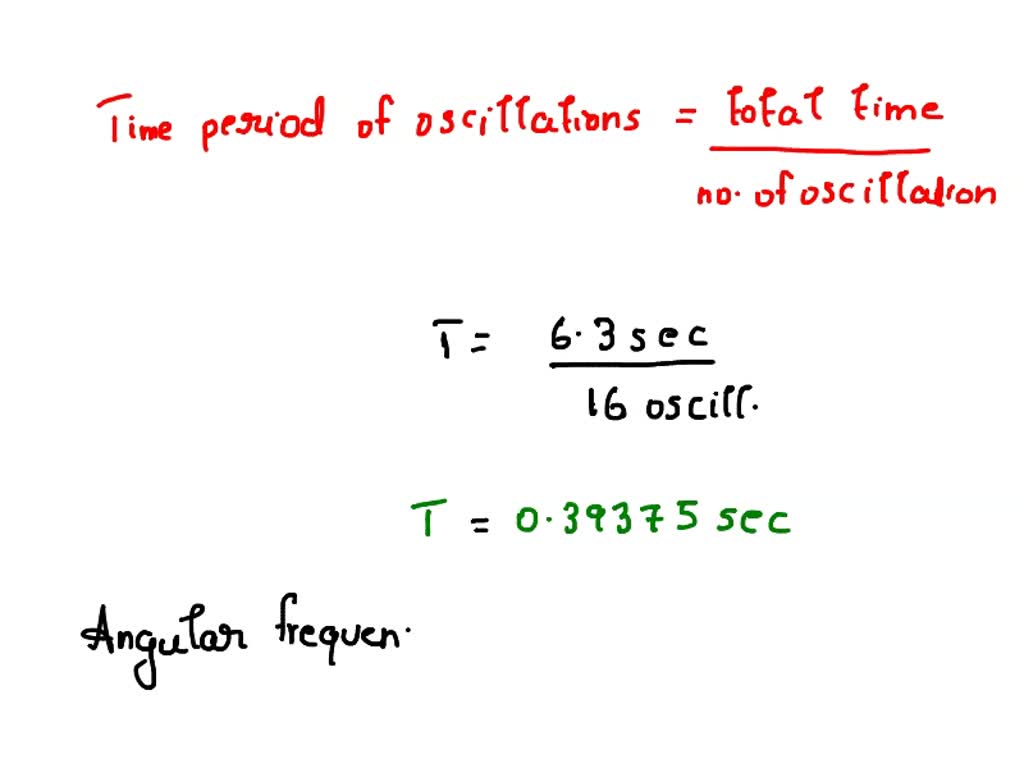 Time period of oscillations = total time
no. of oscillation
T = 6.3 sec
16 oscill.
T = 0.39375 sec
Angular frequen.